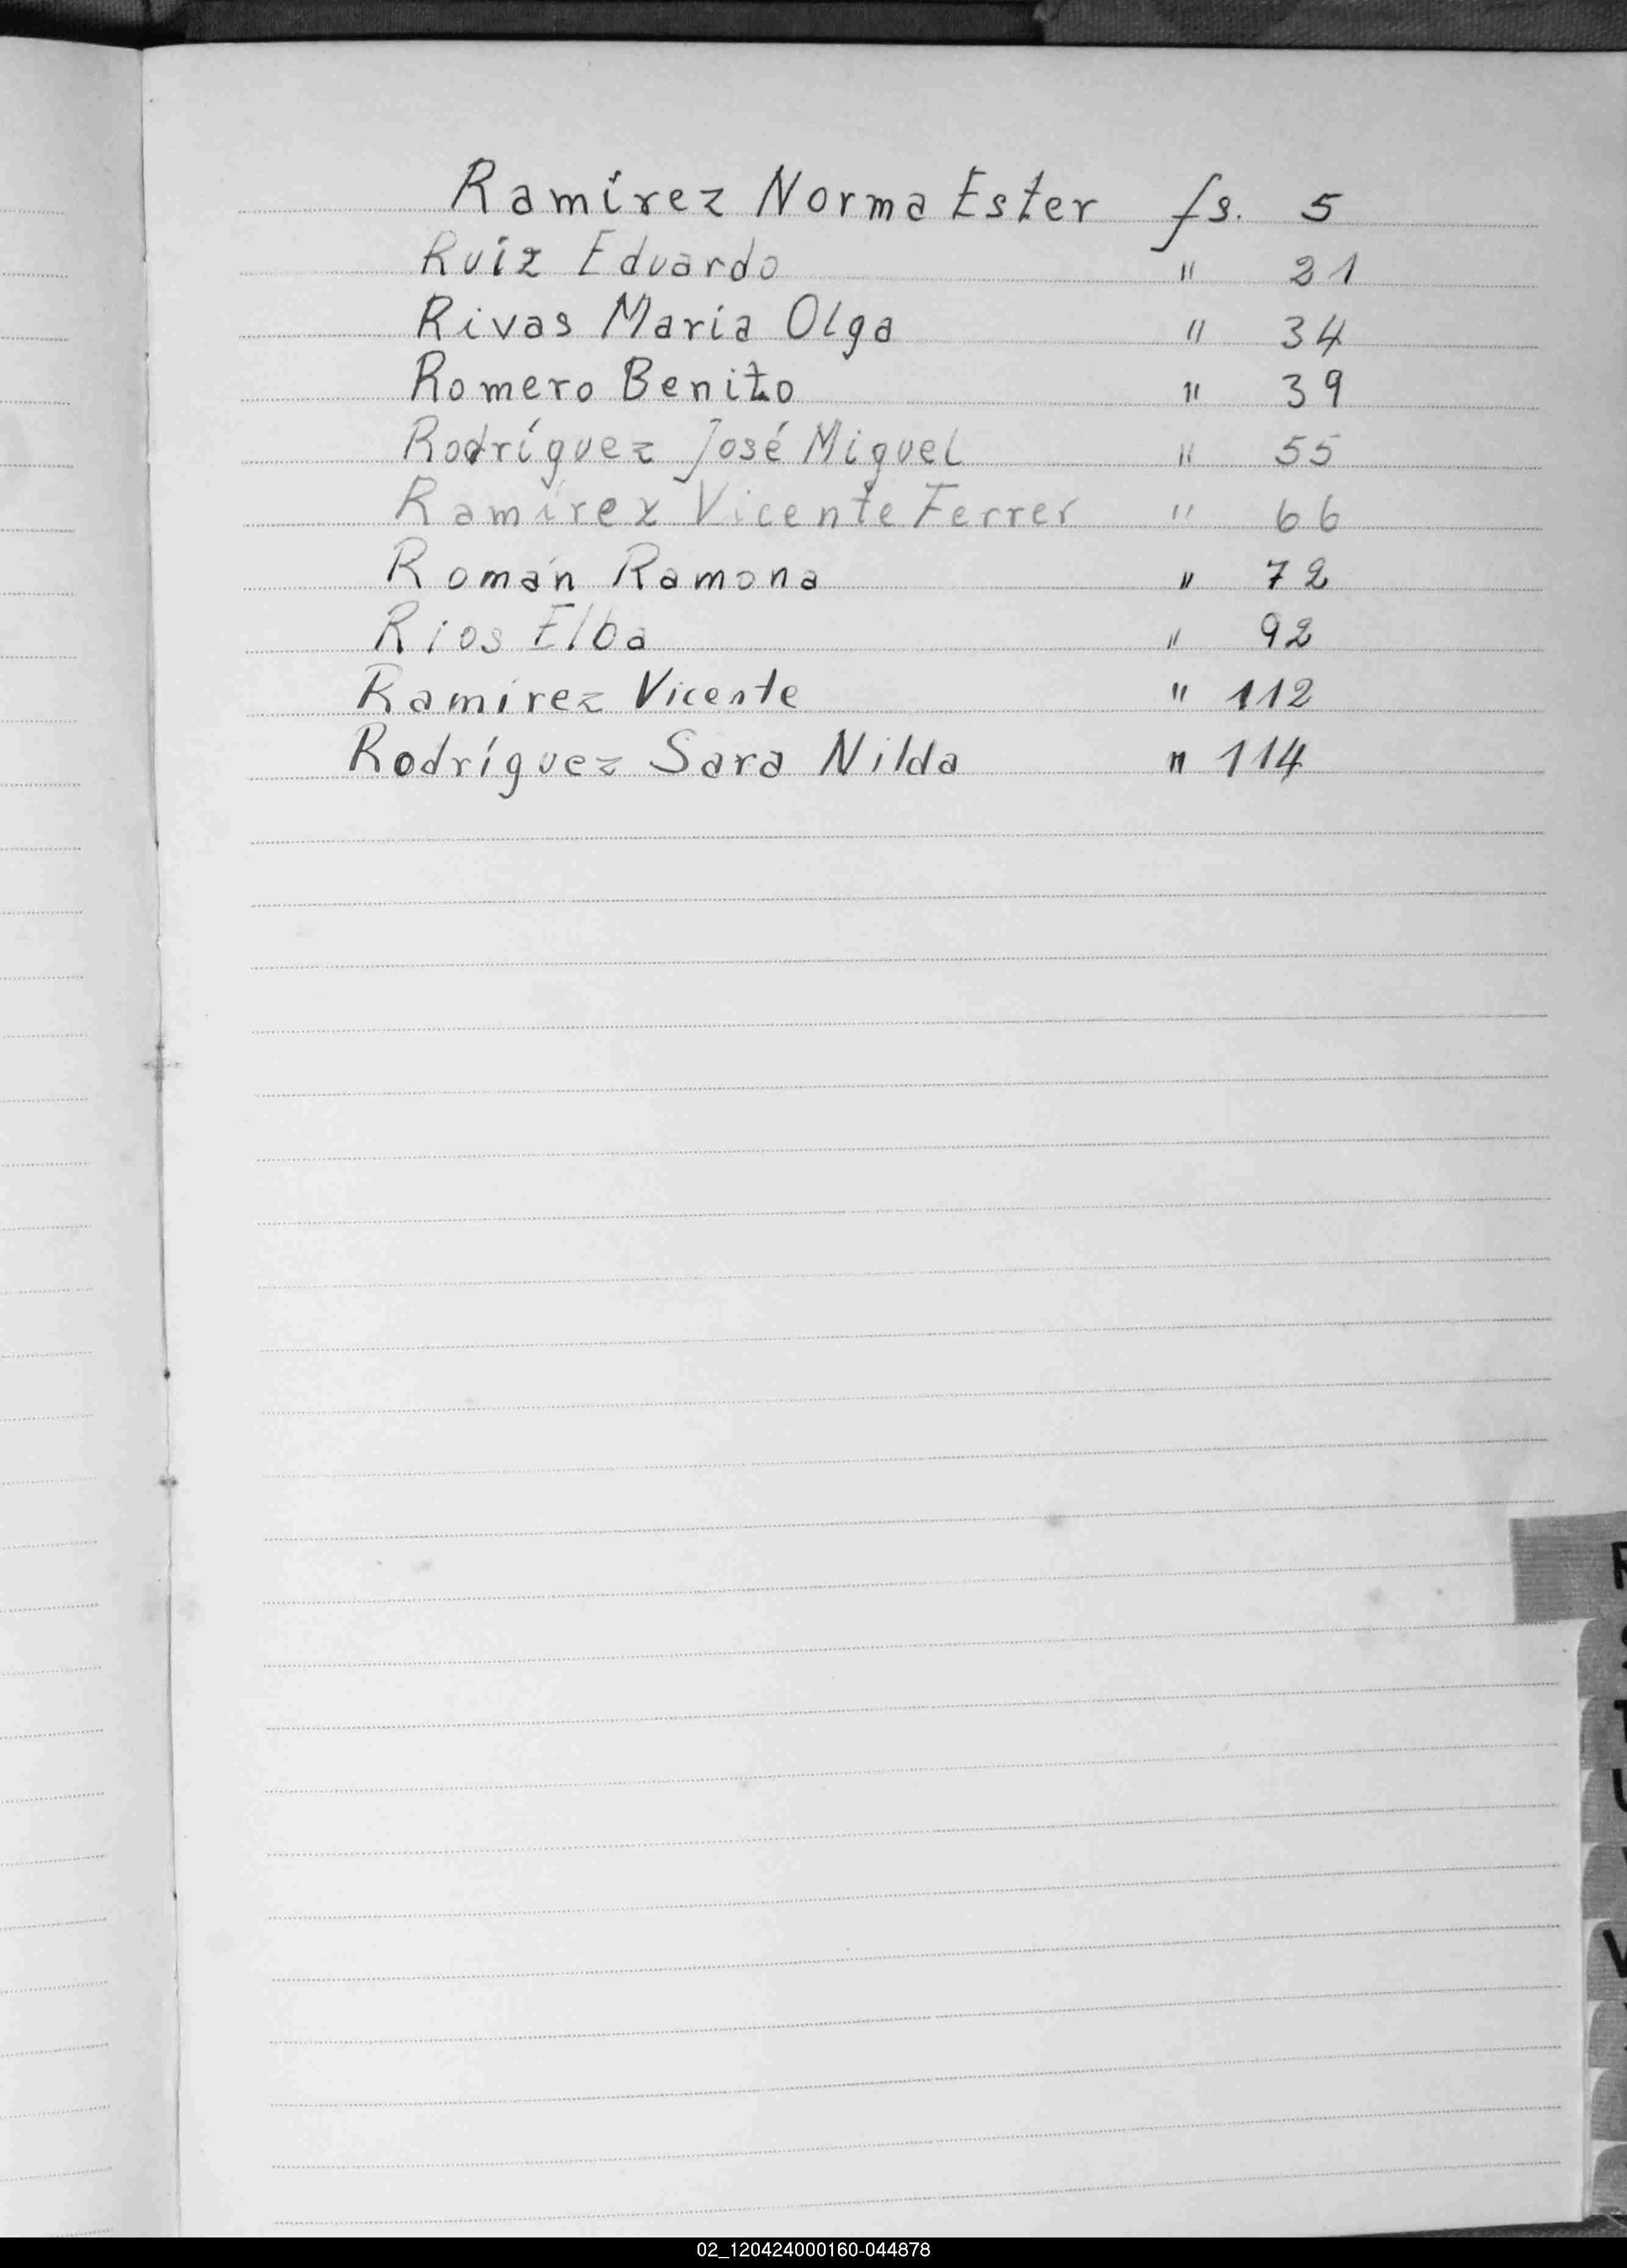 Ramírez Norma Ester fs. 5
Ruíz Eduardo " 21
Rivas María Olga " 34
Romero Benito " 39
Rodríguez José Miguel " 55
Ramírez Vicente Ferrer " 66
Román Ramona " 72
Ríos Elba " 92
Ramírez Vicente " 112
Rodríguez Sara Nilda " 114
R
S
T
U
V
02_120424000160-044878